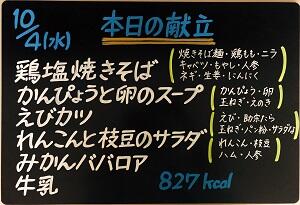 10/4(水)
本日の献立
鶏塩焼きそば
かんぴょうと卵のスープ
えびカツ
れんこんと枝豆のサラダ
みかんババロア
牛乳
焼きそば麺・鶏もも・ニラ
キャベツ・もやし・人参
ネギ・生姜・にんにく
かんぴょう・卵
玉ねぎ・えのき
えび・助宗たら
玉ねぎ・パン粉・サラダ油
れんこん・枝豆
ハム・人参
827kcal